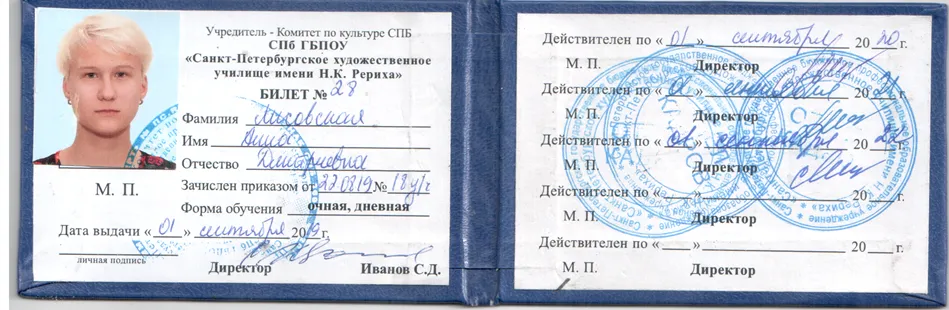 Учредитель - Комитет по культуре СПБ
СПб ГБПОУ
«Санкт-Петербургское художественное
училище имени Н.К. Рериха»
БИЛЕТ № 28
Фамилия Лисовская
Имя Анна
Отчество Дмитриевна
Зачислен приказом от 22.08.19 № 18 у/ч
Форма обучения очная, дневная
М. П.
Дата выдачи «01» сентября 2019 г.
личная подпись
Директор Иванов С.Д.
Действителен по «01» сентября 2020 г.
М. П. Директор
Действителен по «01» сентября 20 г.
М. П. Директор
Действителен по «01» сентября 20 г.
М. П. Директор
Действителен по « » 20 г.
М. П. Директор
Действителен по « » 20 г.
М. П. Директор